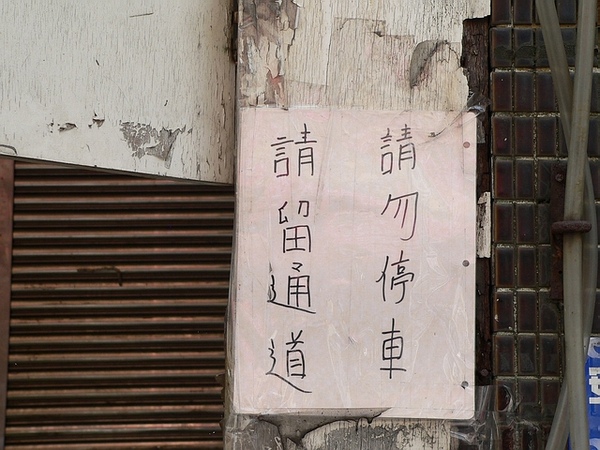 請勿停車
請留通道